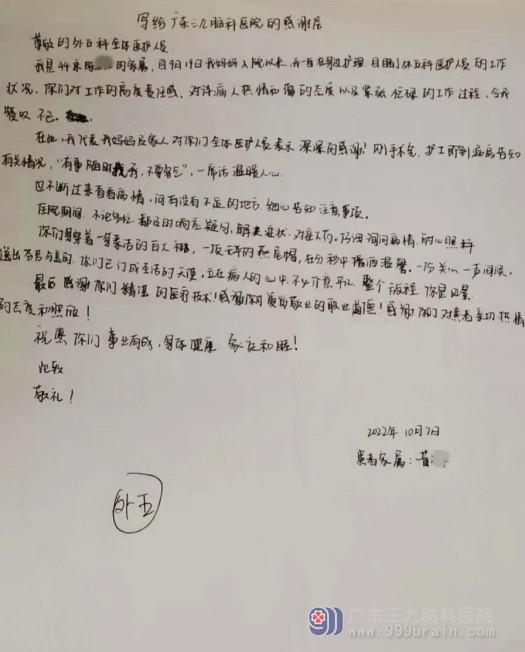 写给广东三九脑科医院的感谢信
尊敬的外五科全体医护人员
我是44床陈 的家属,自9月19日我妈妈入院以来,我一直在身边护理,目睹了外五科医护人员的工作
状况。你们对工作的高度责任感,对待病人热情和蔼的态度以及紧张忙碌的工作过程,令我
赞叹不已。
在此,我代表我妈妈及家人对你们全体医护人员表示深深的感谢!因手术后,护士
有关情况,"有事随时找我,不要客气",一席话温暖人心。
也不断过来看看病情,问有没有不足的地方,细心告知注意事项。
住院期间,不论多忙,都及时响应疑问,解决症状,对症下药,仔细询问病情,耐心照料
你们身穿着一身素洁的白大褂,一顶 的燕尾帽,在分秒中播洒温馨,一份关心一声问候,
送出 你们已们成生活的天使,立在病人的心中,不 整个旅程,你是风景。
最后感谢你们精湛的医疗技术!感谢你们爱岗敬业的职业道德!感谢你们对患者亲切热情
的态度和照顾!
祝愿你们事业有成,身体健康,家庭和睦!
此致
敬礼!
2022年10月7日
患者家属:黄
外五
广东三九脑科医院
www.999brain.com